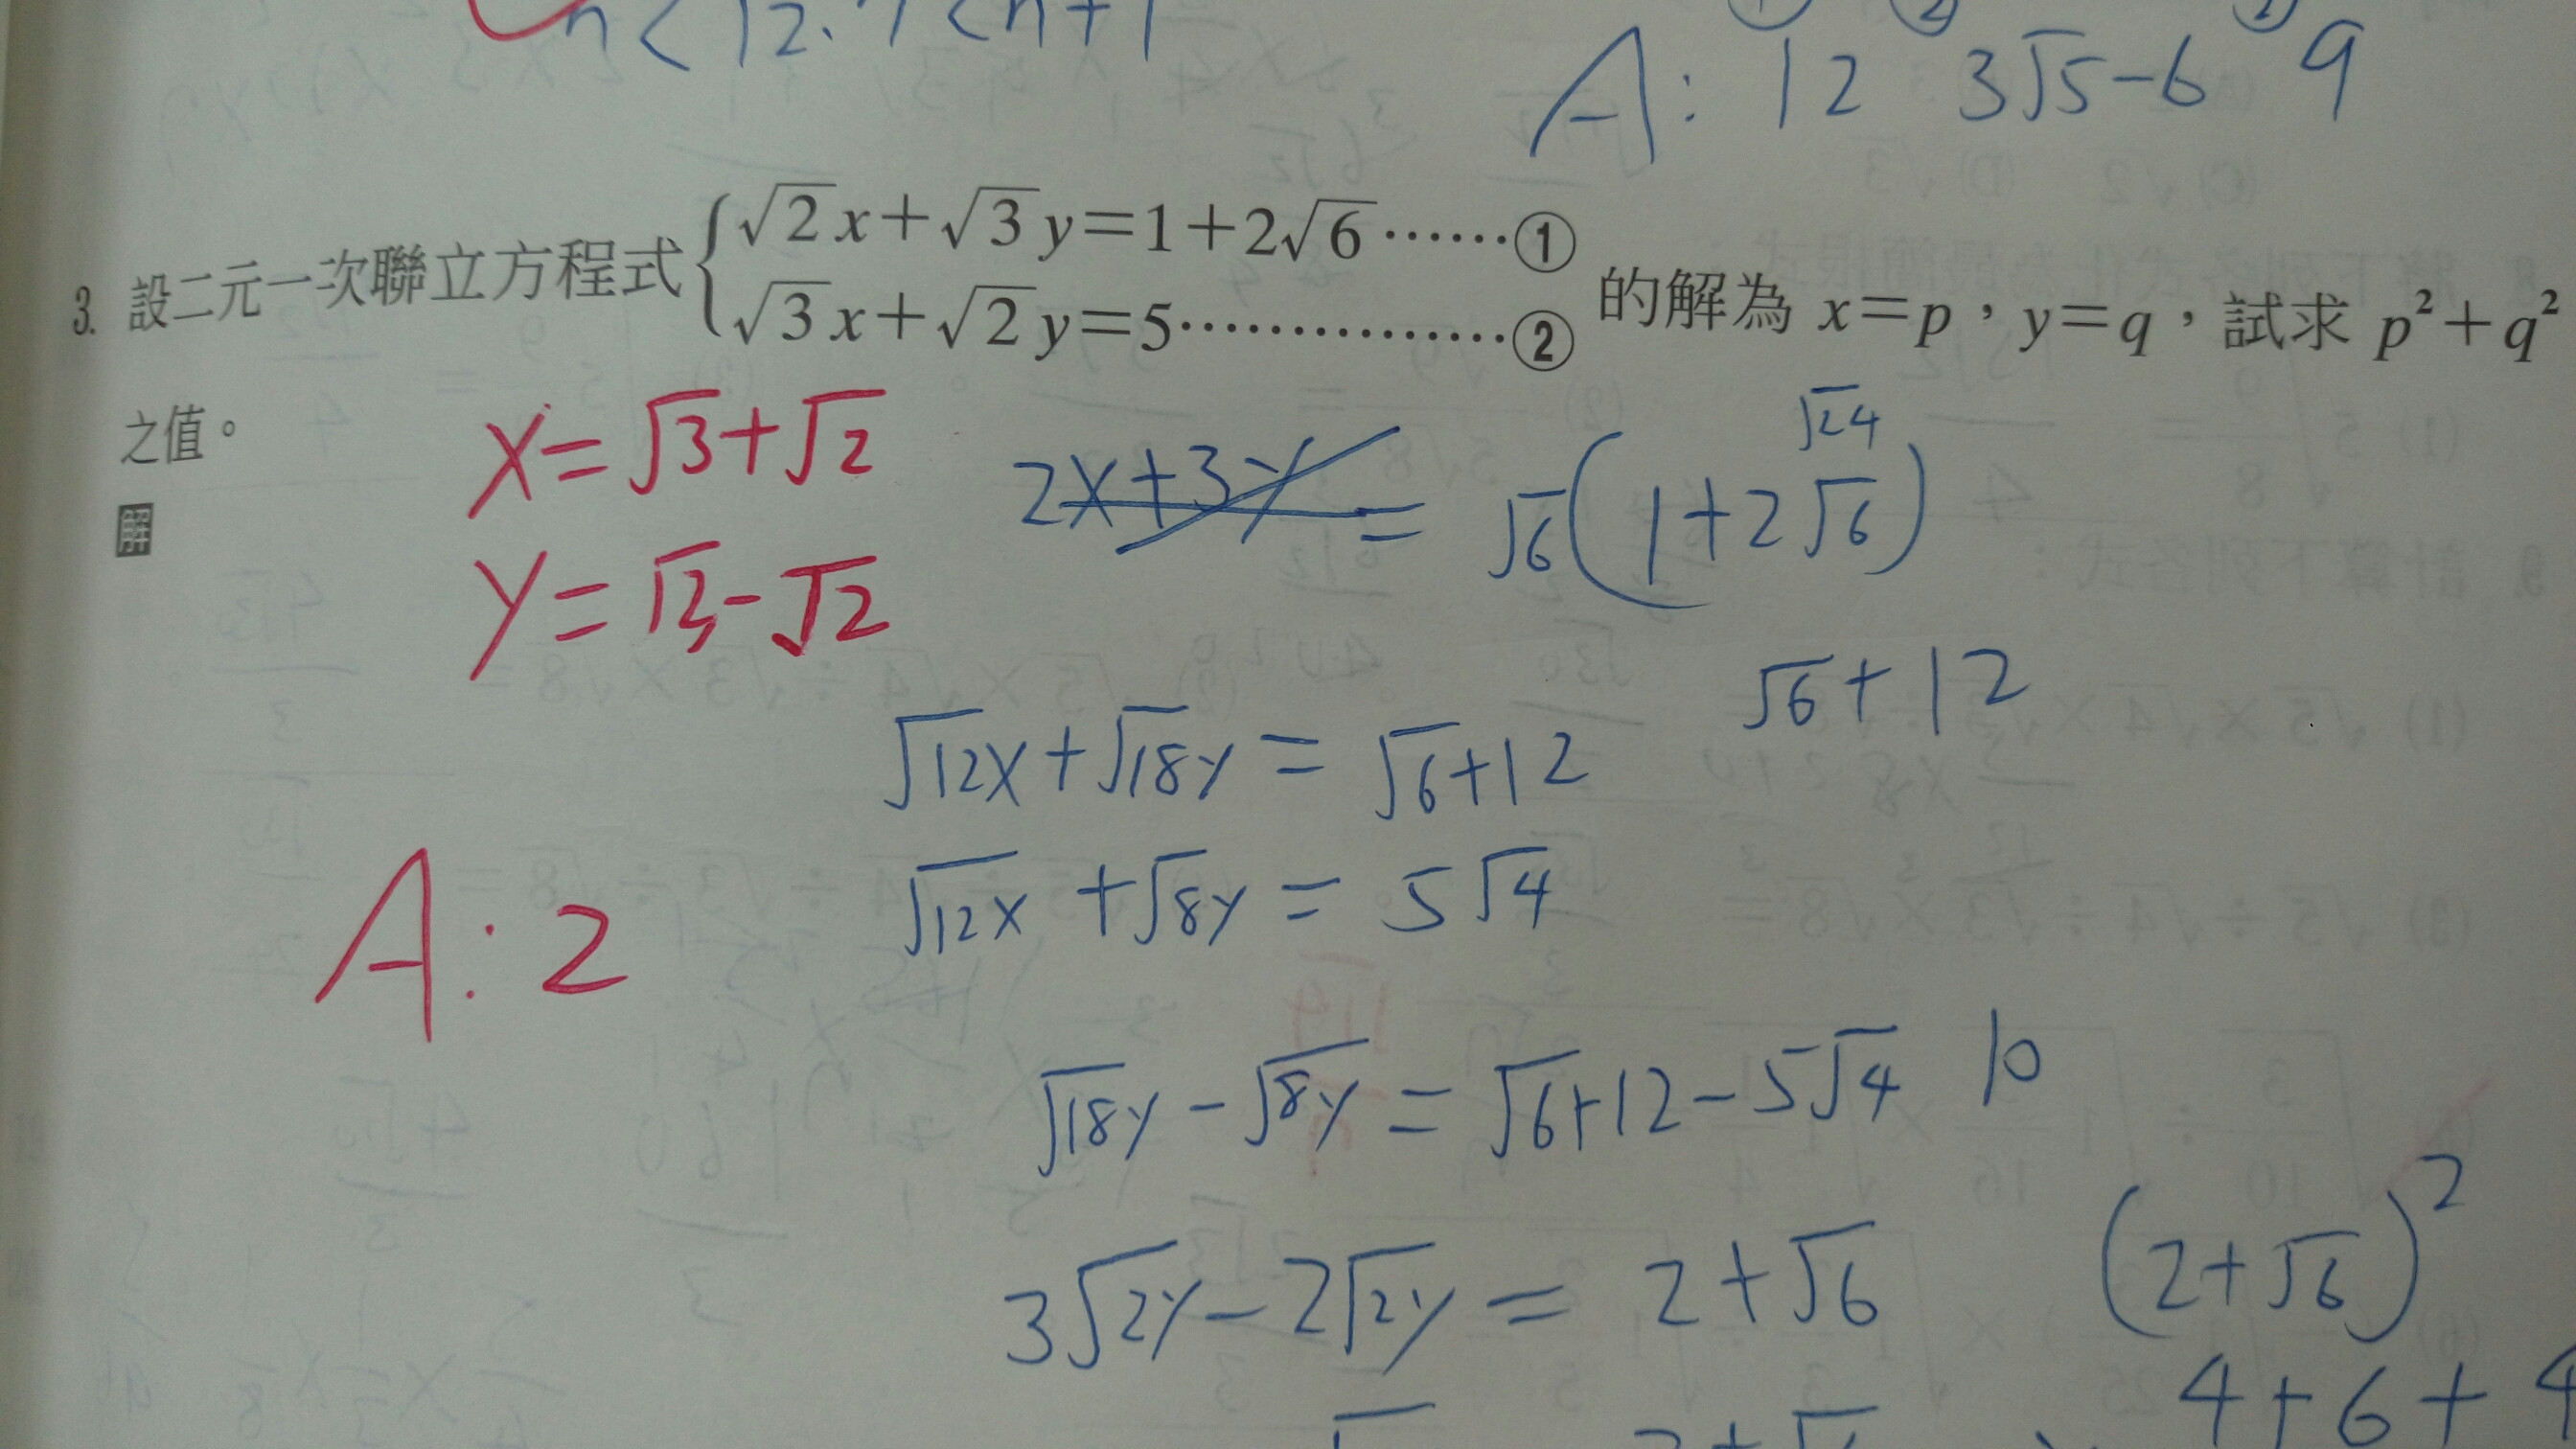 n < 12.7 < n+1
① ② ②
A: 12 3√5-6 9
3. 設二元一次聯立方程式 { √2x+√3y=1+2√6……①
√3x+√2y=5……………② 的解為 x=p，y=q，試求 p²+q²
之值。
解
x=√3+√2
y=√3-√2
A: 2
√24
2x+3y = √6(1+2√6)
√6+12
√12x+√18y = √6+12
√12x+√8y = 5√4
√18y-√8y = √6+12-5√4 10
3√2y-2√2y = 2+√6 (2+√6)²
4+6+4